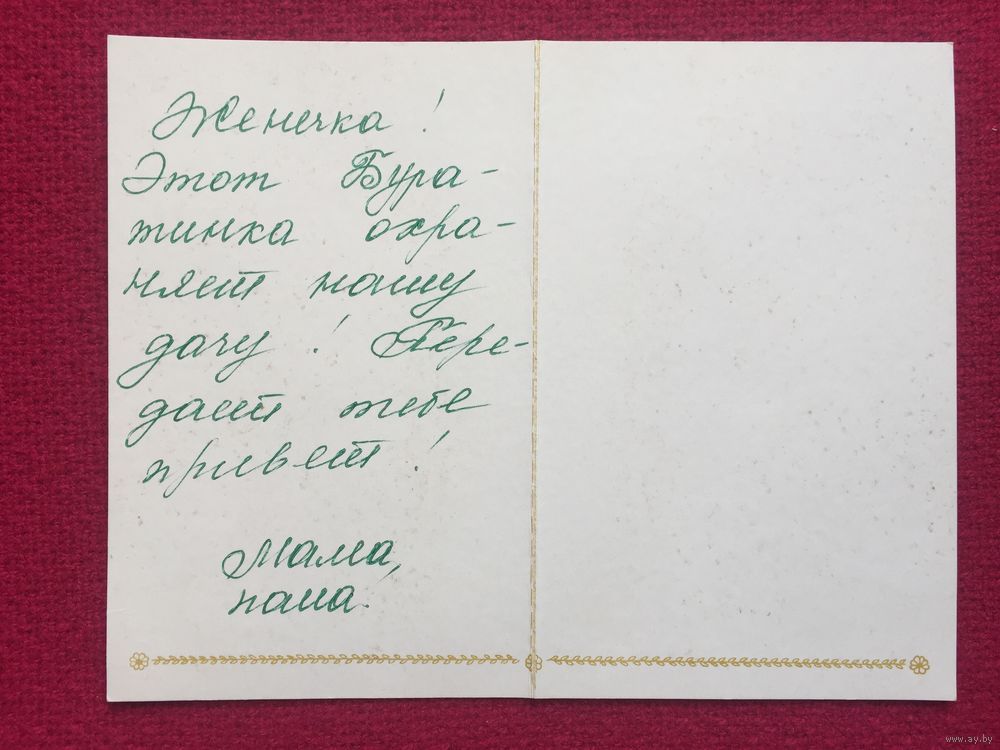 Женечка!
Этот Бура-
тинка охра-
няет нашу
дачу! Пере-
дает тебе
привет!
Мама,
папа.
www.ay.by